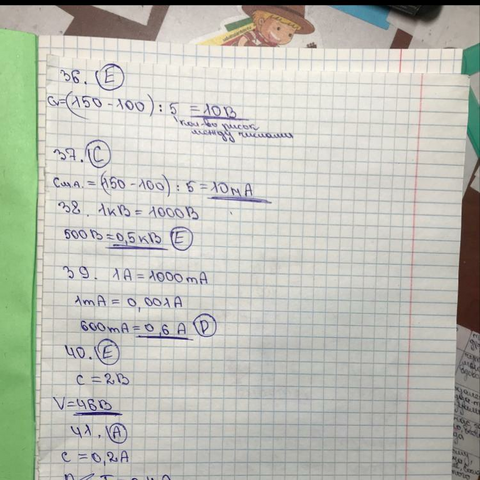 36. E
Cv=(150-100):5=10В
кол-во рисок
между числами
37. C
CмА.=(150-100):5=10мА
38. 1кВ=1000В
500В=0,5кВ E
39. 1А=1000mA
1mA=0,001А
600mA=0,6 А D
40. E
c=2В
V=46В
41. A
c=0,2А